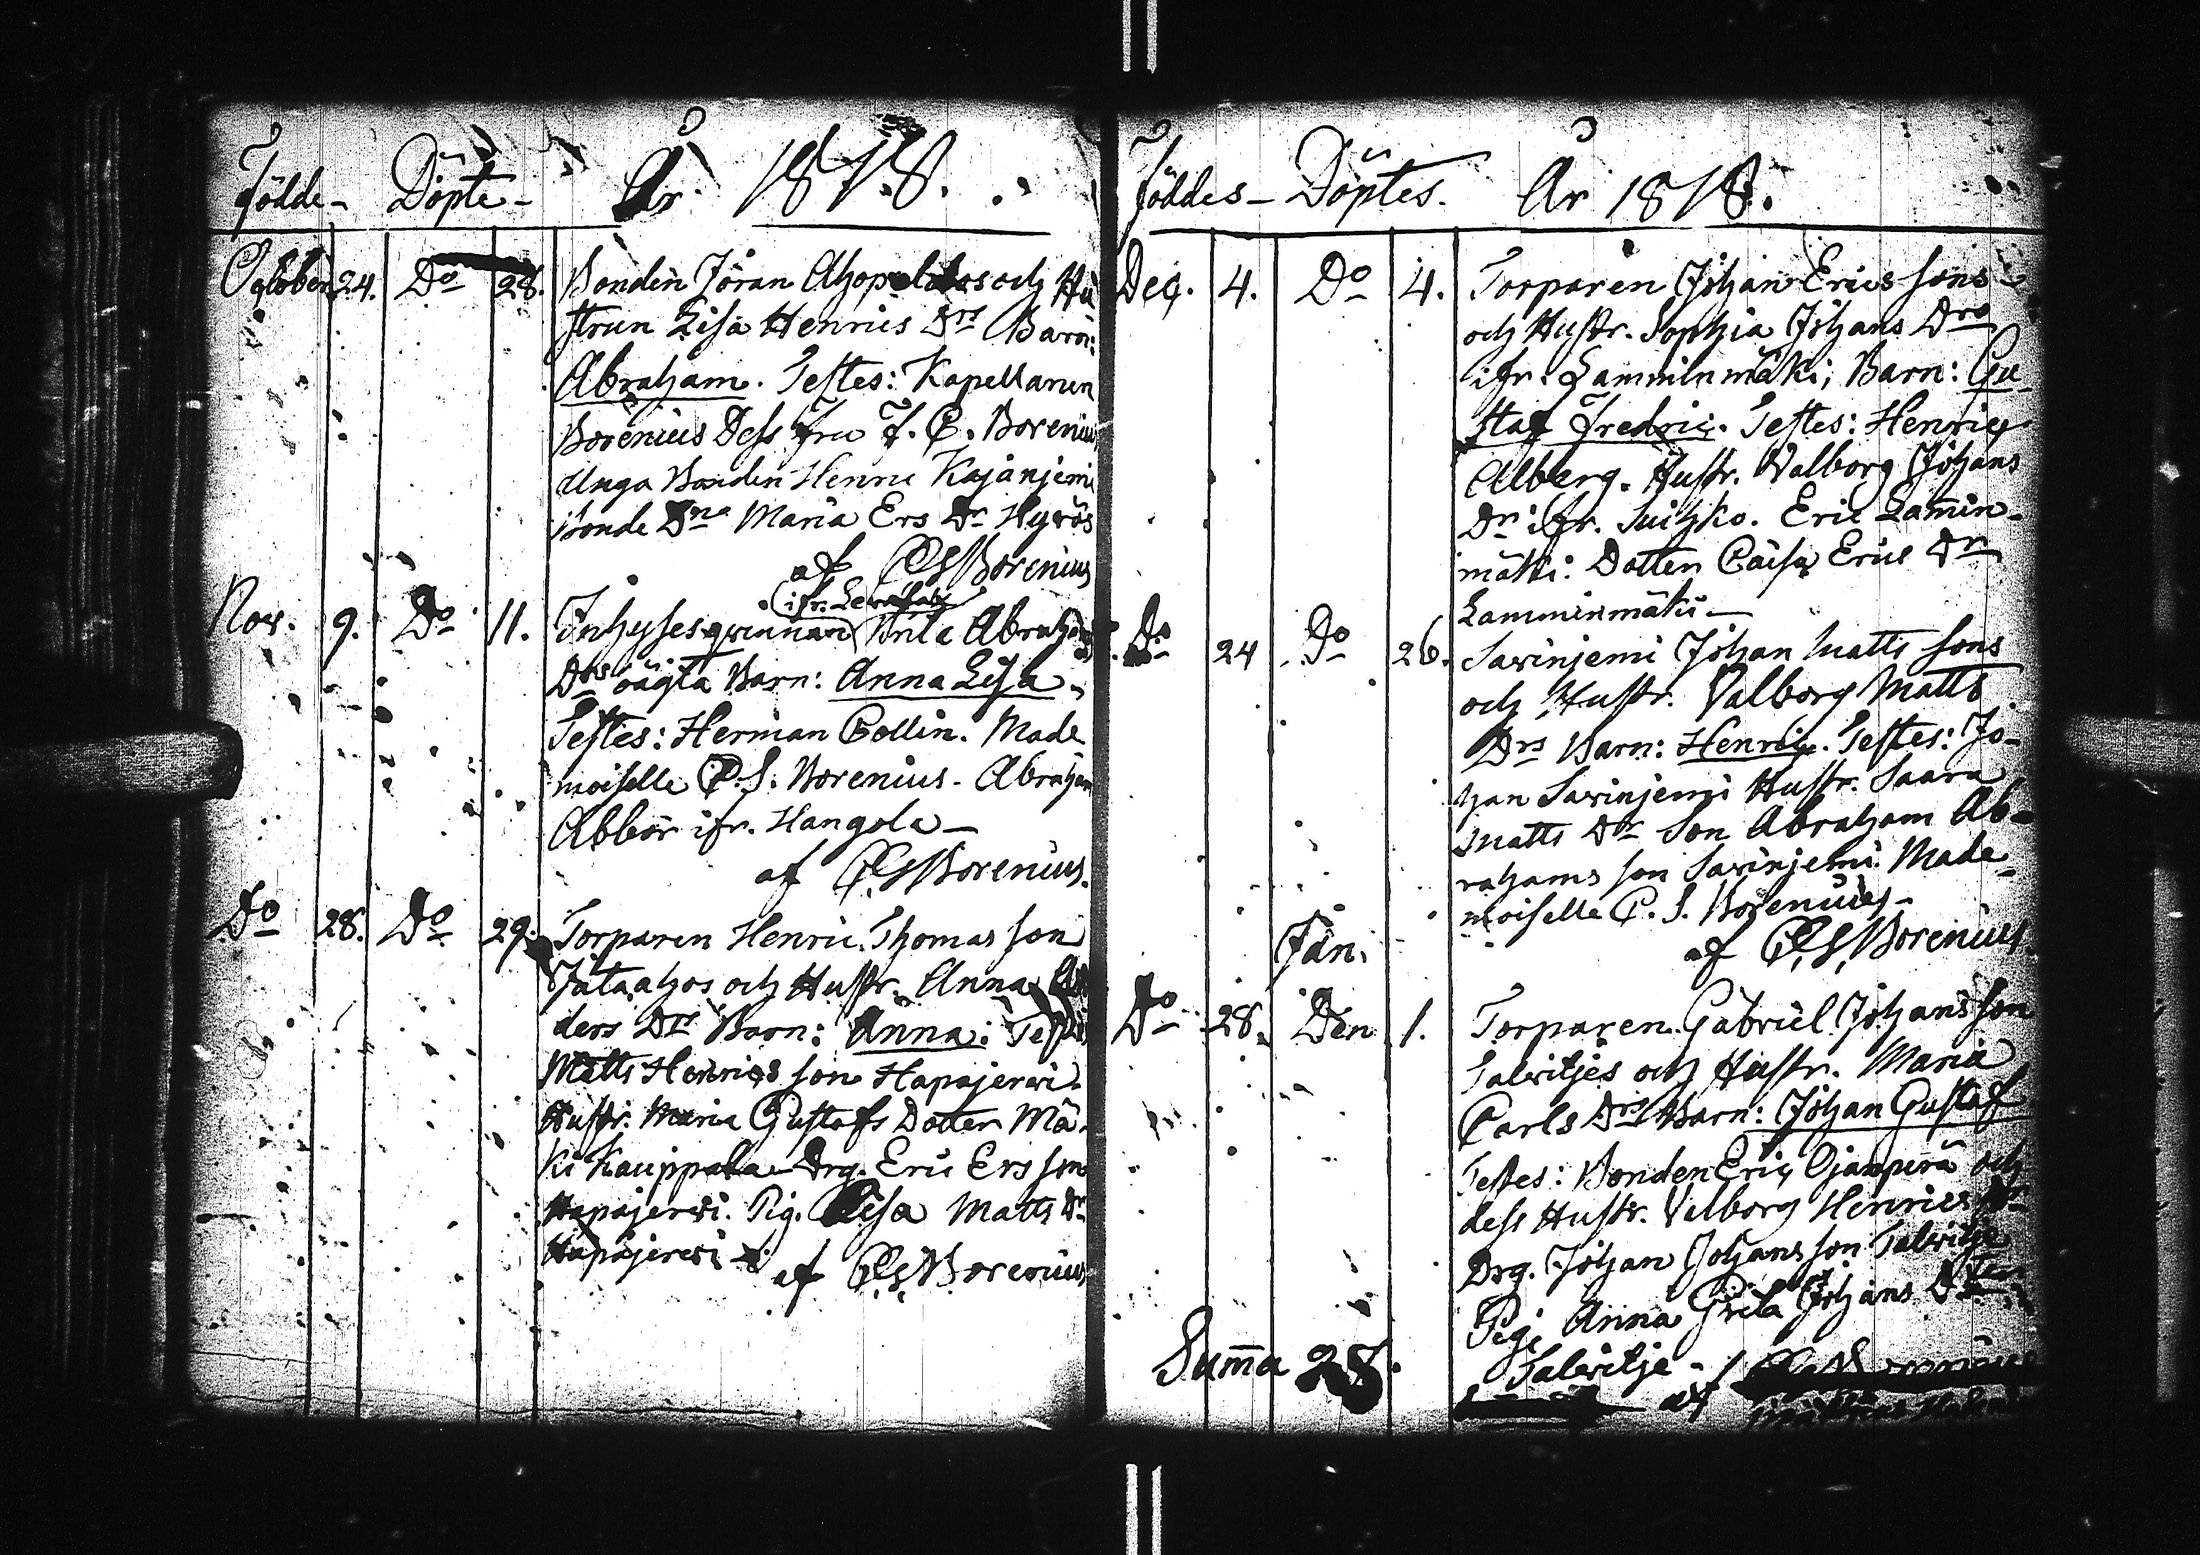 Födde- Döpte- År 1818.
October 24. Do 28. Bonden Jöran Ahopeldos och Hu
strun Lisa Henrics Drs Barn:
Abraham. Testes: Kapellanen
Borenius Dess Fru F. C. Borenius
Unga Bonden Henric Kajanjemi
Bonde Dna Maria Ers Dr Hyrös
af CGBorenius
(ifr.
Nov. 9. Do 11. Inhysesqwinnan Brita Abrahams
Drs oägta Barn: Anna Lisa.
Testes: Herman Collin. Made
moiselle C. S. Borenius. Abraham
Abbor ifr. Hangola
af CGBorenius.
Do 28. Do 29. Torparen Henric Thomas son
Jätaahos och Hustr. Anna An
ders Drs Barn: Anna: Testes
Matts Henrics son Hapajerwi.
Hustr. Maria Gustafs Dotter Mä-
ki Kauppala Drg. Eric Ers son
Hapajerwi. Pig. Lisa Matts Dr
Hapajerwi
af CGBorenius
Föddes- Döptes. År 1818.
Dec. 4. Do 4. Torparen Johan Erics sons
och Hustr. Sophia Johans Drs
ifr. Lamminmäki; Barn: Gu
staf Fredric. Testes: Henric
Alberg. Hustr. Walborg Johans
Dr ifr. Suihko. Eric Lamin-
mäki: Dotter Caisa Erics Dr
Lamminmäki
Do 24 Do 26. Sarinjemi Johan Matts sons
och Hustr. Valborg Matts
Drs Barn: Henric. Testes: Jo-
han Sarinjemi Hustr. Saara
Matts Dr Son Abraham Ab-
rahams son Sarinjemi. Made-
moiselle C. S. Borenius-
af CGBorenius
Jan.
Do 28. Den 1. Torparen Gabriel Johans son
Talwitjes och Hustr. Maria
Carls Drs Barn: Johan Gustaf
Testes: Bonden Eric Ojanperä och
dess Hustr. Valborg Henrics Dr
Drg. Johan Johans son Talwitje
Pig. Anna Greta Johans Dr
Talwitje
af
Summa 28.